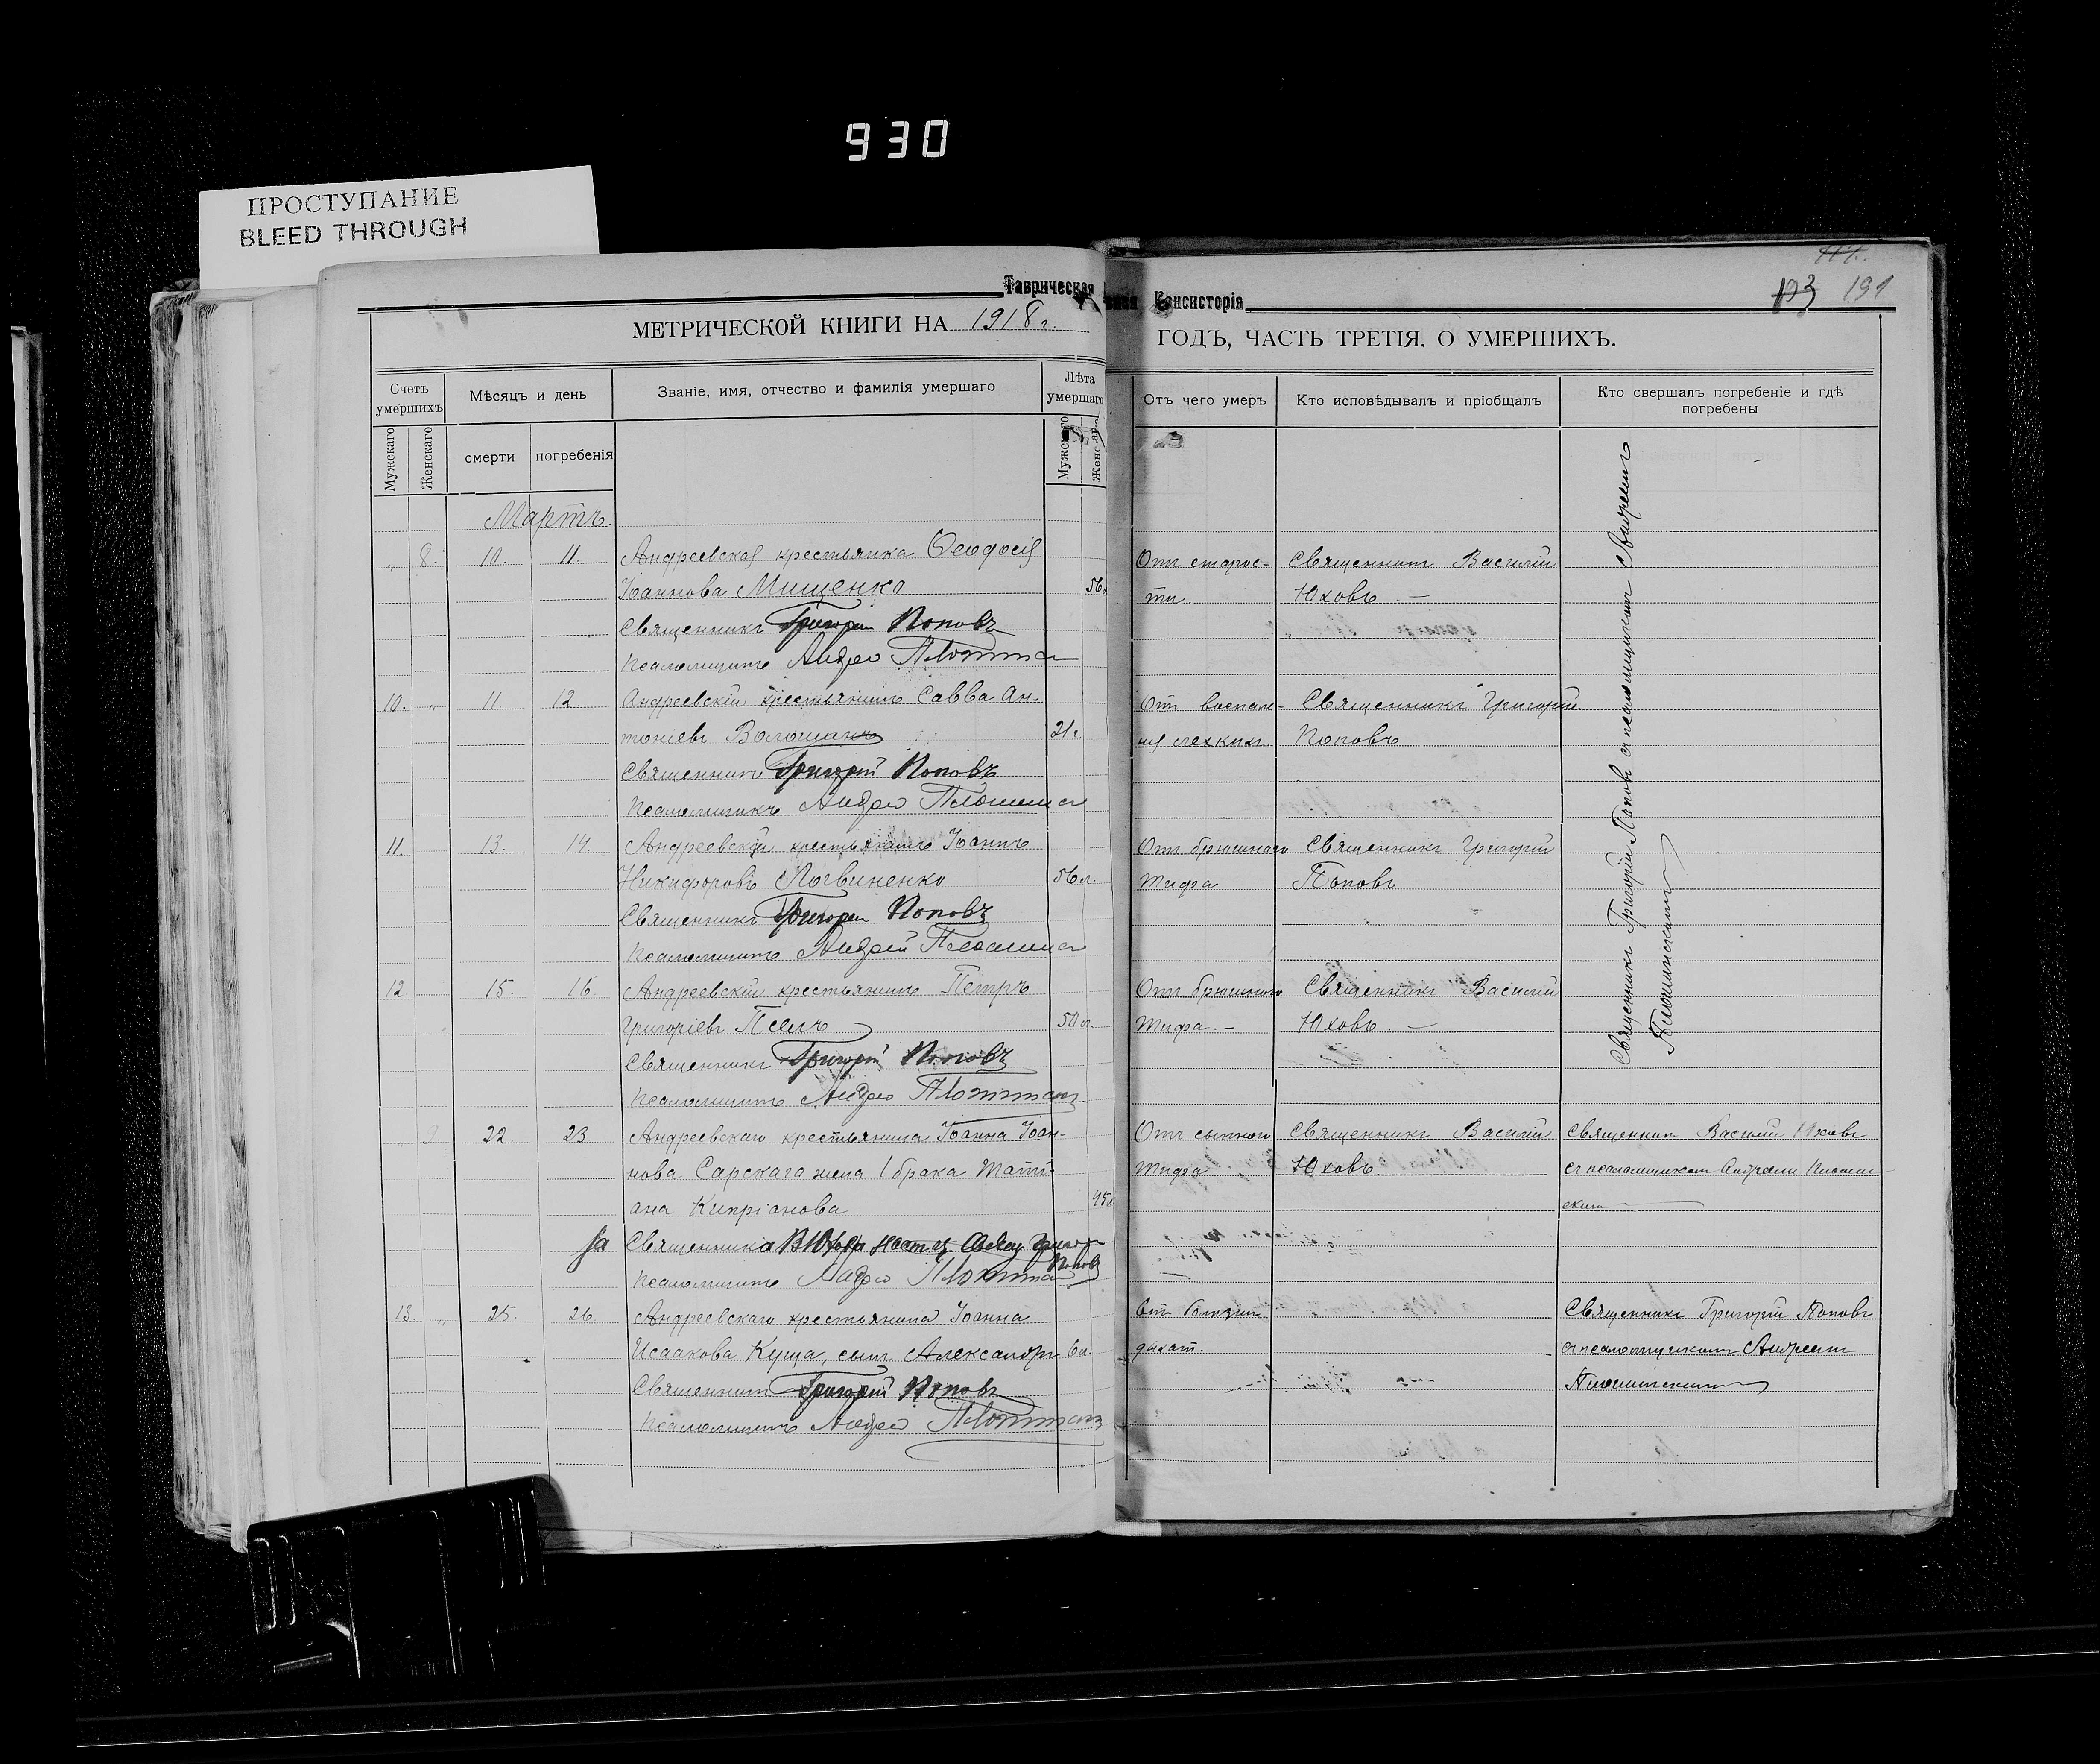 930
ПРОСТУПАНИЕ
BLEED THROUGH
Таврическая
Консисторія
193 191
МЕТРИЧЕСКОЙ КНИГИ НА 1918 г.
ГОДЪ, ЧАСТЬ ТРЕТІЯ, О УМЕРШИХЪ.
Счетъ умершихъ
Мѣсяцъ и день
Званіе, имя, отчество и фамилія умершаго
Лѣта умершаго
Отъ чего умеръ
Кто исповѣдывалъ и пріобщалъ
Кто свершалъ погребеніе и гдѣ погребены
Мужскаго
Женскаго
смерти
погребенія
Мужского
Мартъ.
„ 8. 10. 11. Андреевская крестьянка Ѳеодосія
Отъ старос- Священникъ Василій
Іоаннова Мищенко 56
ти Юховъ —
Священникъ Григорій Поповъ
Псаломщикъ Андрей
10. „ 11 12 Андреевскій крестьянинъ Савва Ан-
Отъ воспале- Священникъ Григорій
тоніевъ 21
нія легкихъ Поповъ
Священникъ Григорій Поповъ
Псаломщикъ Андрей
11. 13. 14. Андреевскій крестьянинъ Іоаннъ
Отъ брюшного Священникъ Григорій
Никифоровъ Логвиненко 56 л.
Тифа Поповъ
Священникъ Григорій Поповъ
Псаломщикъ Андрей
12 15. 16 Андреевскій крестьянинъ Петръ
Отъ брюшного Священникъ Василій
Григоріевъ 50 л.
Тифа. — Юховъ. —
Священникъ Григорій Поповъ
Псаломщикъ Андрей
Священникъ Григорій Поповъ съ псаломщикомъ Андреемъ
9 22 23 Андреевскаго крестьянина Іоанна Іоан-
Отъ сыпного Священникъ Василій Священникъ Василій Юховъ
нова Сарскаго жена 1 брака Таті-
Тифа Юховъ съ псаломщикомъ Андреемъ
ана Кипріанова 45
За Священника В Юхова Григорій
Поповъ
Псаломщикъ Андрей
13. „ 25. 26 Андреевскаго крестьянина Іоанна
Священникъ Григорій Поповъ
Исаакова Куща, сынъ Александръ
дыхат. съ псаломщикомъ Андреемъ
Священникъ Григорій Поповъ
Псаломщикъ Андрей